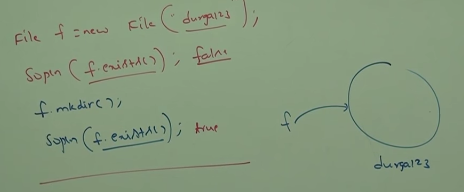 File f = new File ("durga123");
Sopln (f.exists()); false
f.mkdir();
Sopln (f.exists()); true
f
durga123